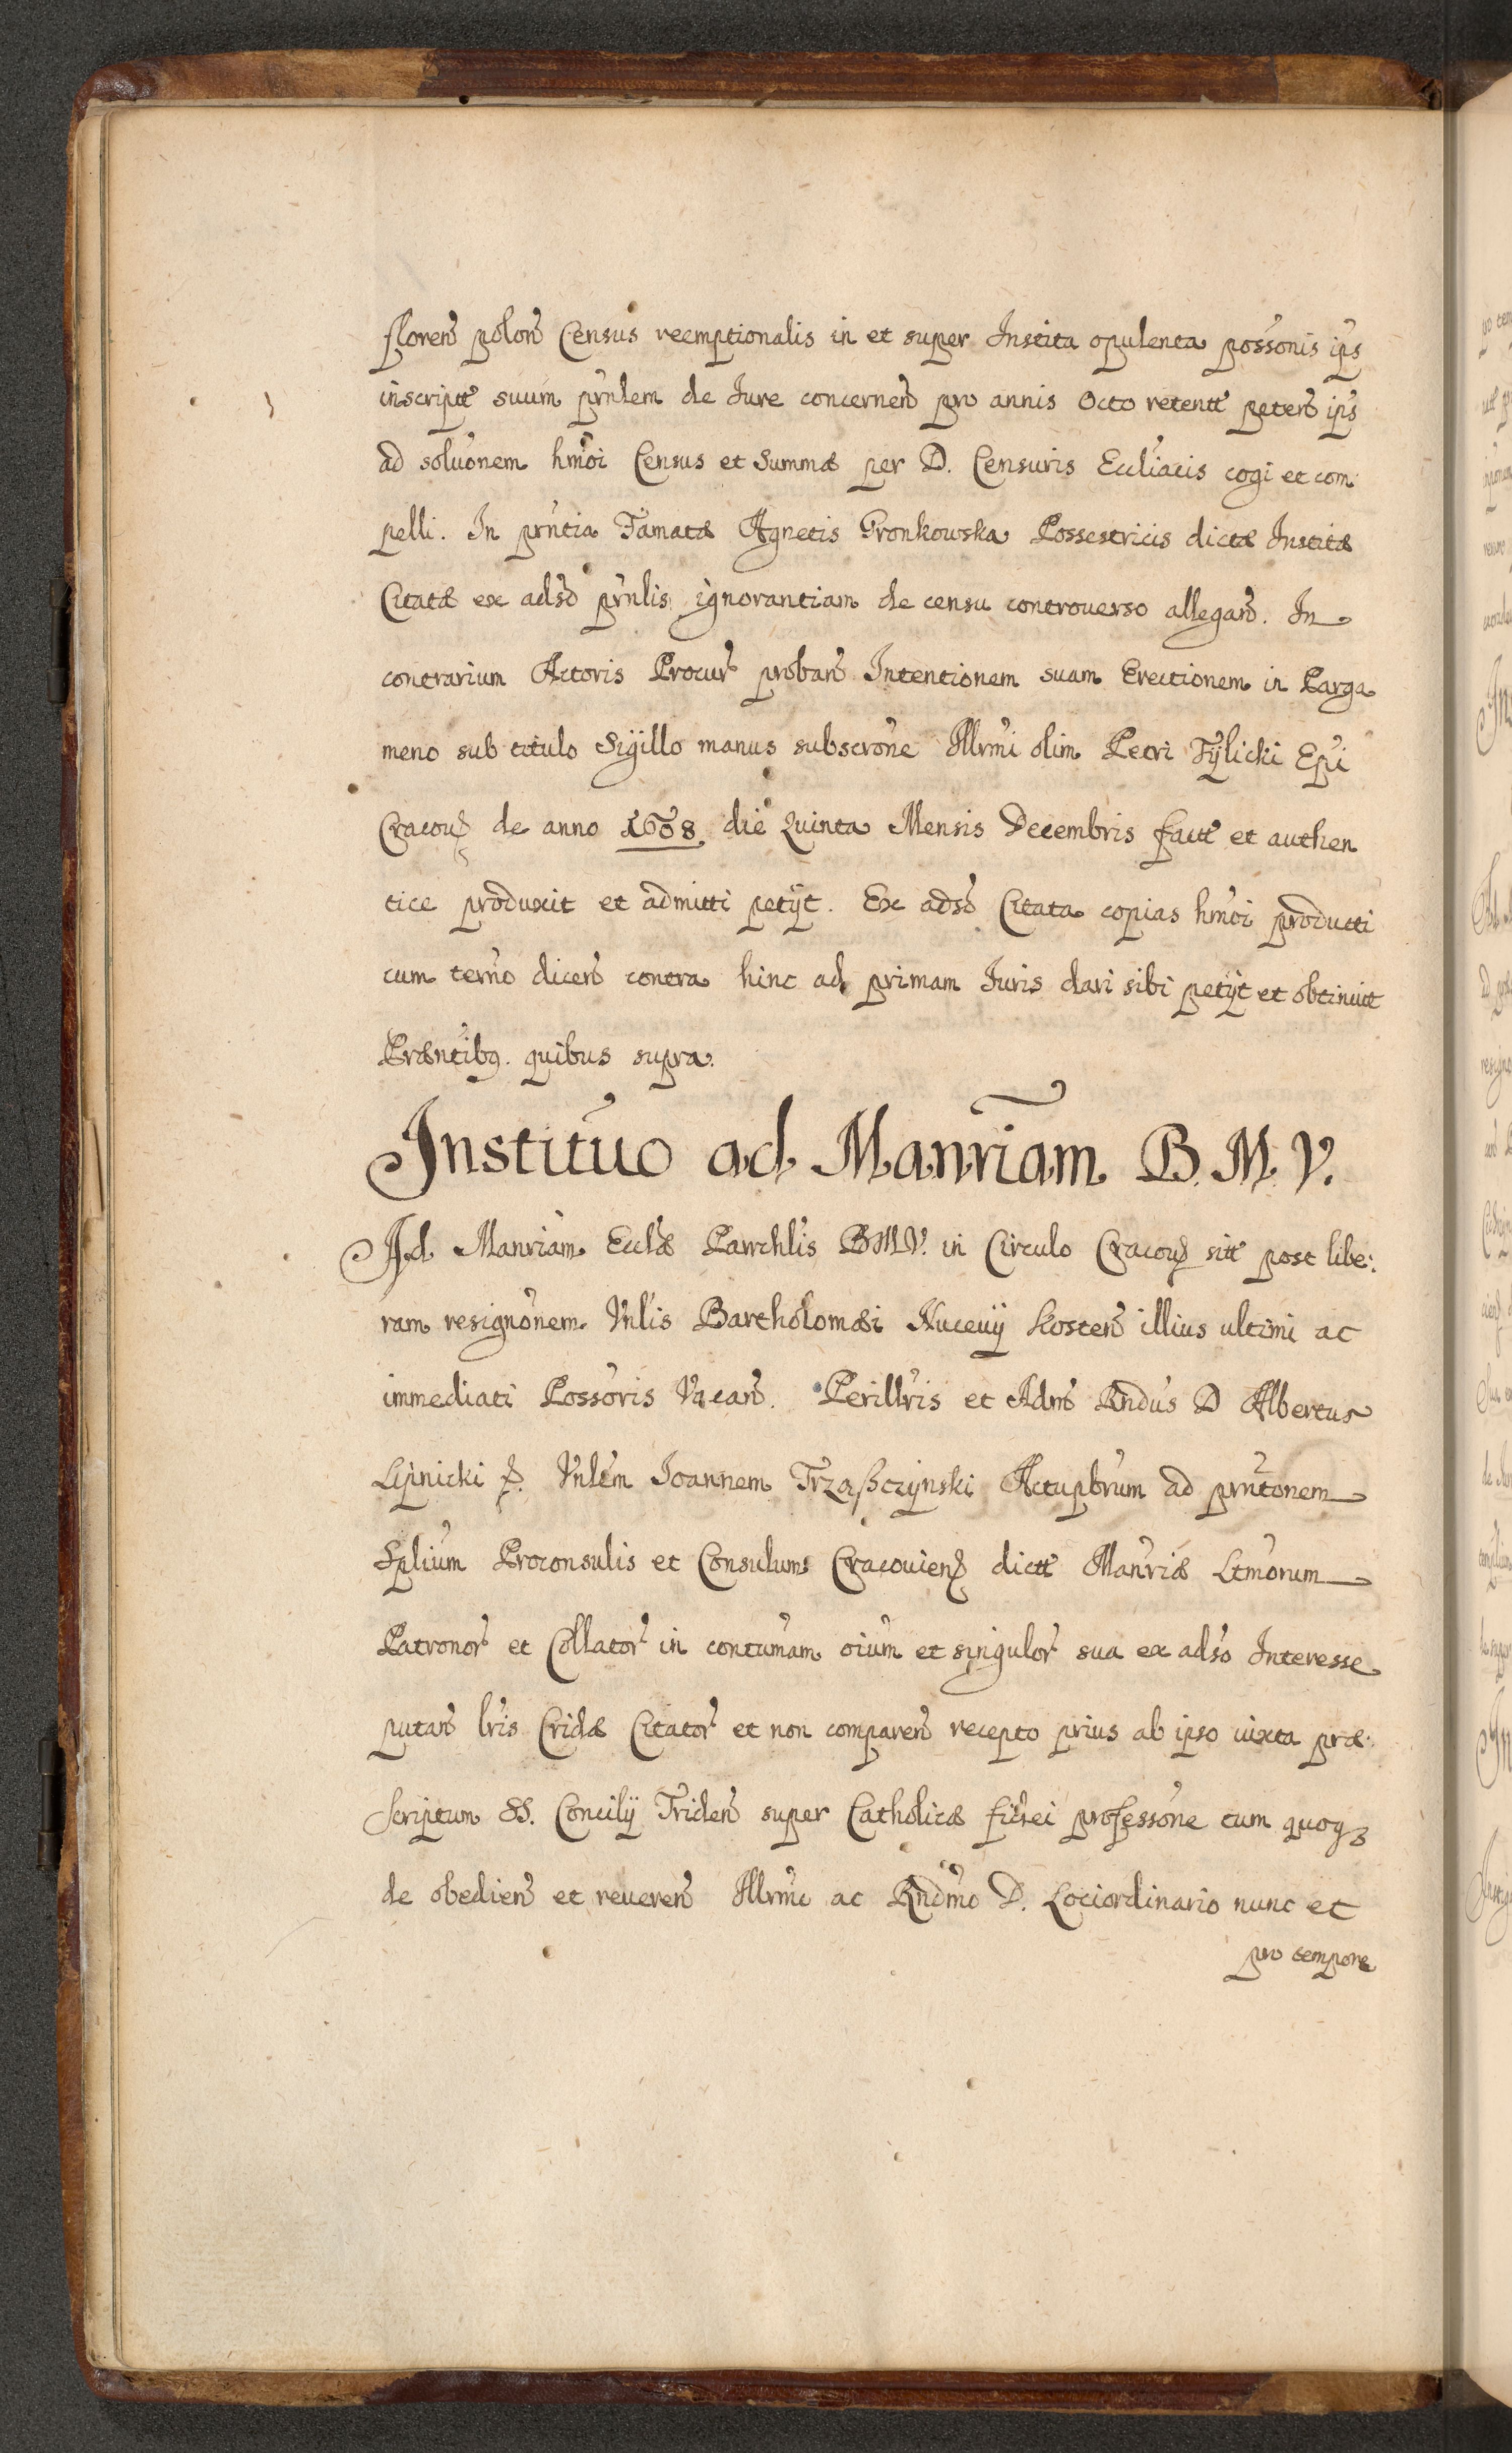 floren polon Census reemptionalis in et super Instita opulenta possonis ips
inscriptt suum prnlem de Iure concernen pro annis Octo retentt peten ips
ad soluonem hmoi Census et Summæ per D. Censuris Eccliacis cogi et com
pelli. In prntia Famatæ Agnetis Gronkowska Possestricis dictæ Institæ
Citatæ ex adso prnlis ignorantiam de censu controuerso allegan. In
contrarium Actoris Procur proban Intentionem suam Erectionem in Parga
meno sub titulo Sigillo manus subscrone Illrmi olim Petri Tÿlicki Epi
Cracou de anno 1608 die Quinta Mensis Decembris factt et authen
tice produxit et admitti petÿt. Ex adso Citata copias hmoi producti
cum termo dicen contra hinc ad primam Iuris dari sibi petÿt et obtinuit
Præntibq. quibus supra.
Institutio ad Manriam B. M. V.
Ad Manriam Ecclæ Parrchlis BMV. in Circulo Cracou sitt post libe:
ram resignonem Vnlis Bartholomæi Nuceuij Kosten illius ultimi ac
immediati Possoris Vacan. Perillris et Adm Rndus D Albertus
Lipnicki &. Vnlem Ioannem Trzaßczÿnski Actuprum ad prntonem
Splium Proconsulis et Consulum Cracouien dictt Manriæ Ltmorum
Patronor et Collator in contumam oium et singulor sua ex adso Interesse
putan lris Cridæ Citator et non comparen recepto prius ab ipso iuxta præ:
scriptum SS. Concilij Triden super Catholicæ fidei professone tum quoq3
de obedien et reueren Illrmo ac Rndmo D. Lociordinario nunc et
pro tempore